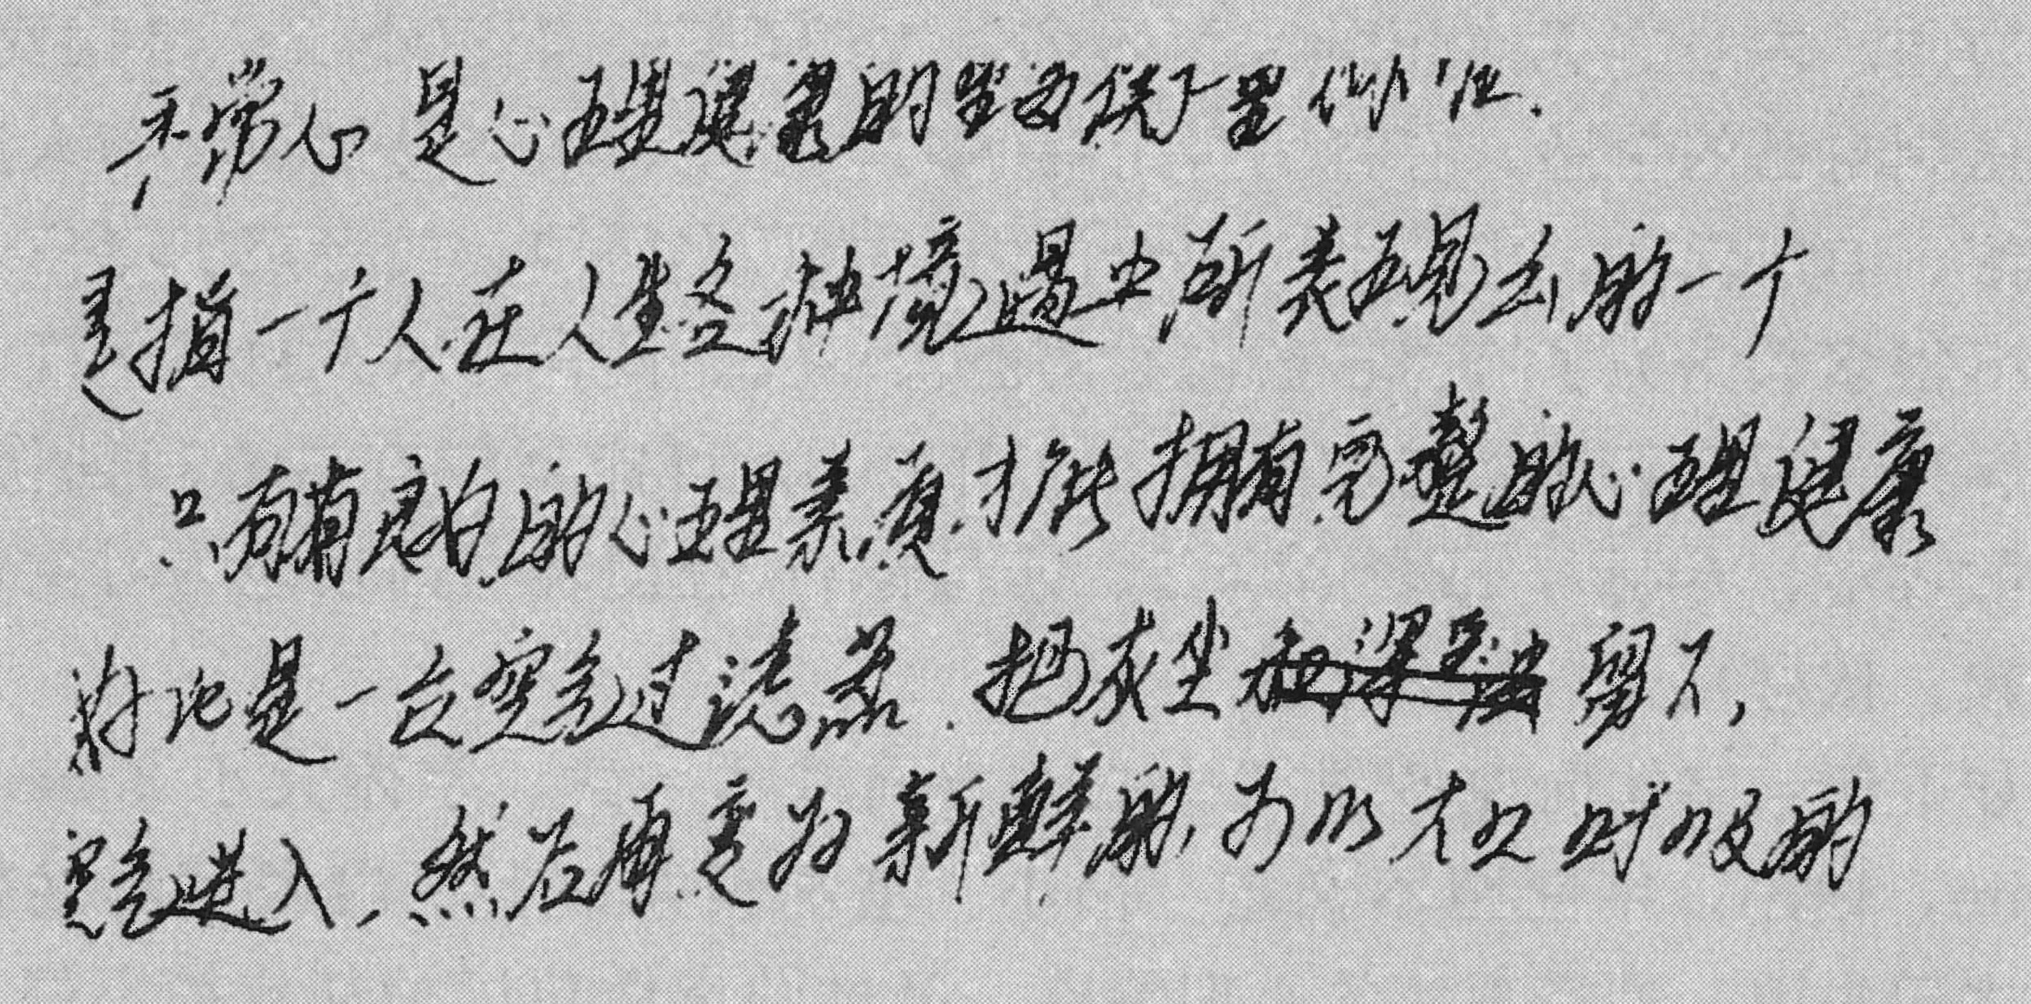 平常心是心理健康的重要
是指一个人在人生各种境遇中所表现出的一个
只有有良好的心理素质才能拥有完整的心理健康
好比是一台空气过滤器.把灰尘留下,
空气进入,然后再变为新鲜的,可以大口呼吸的